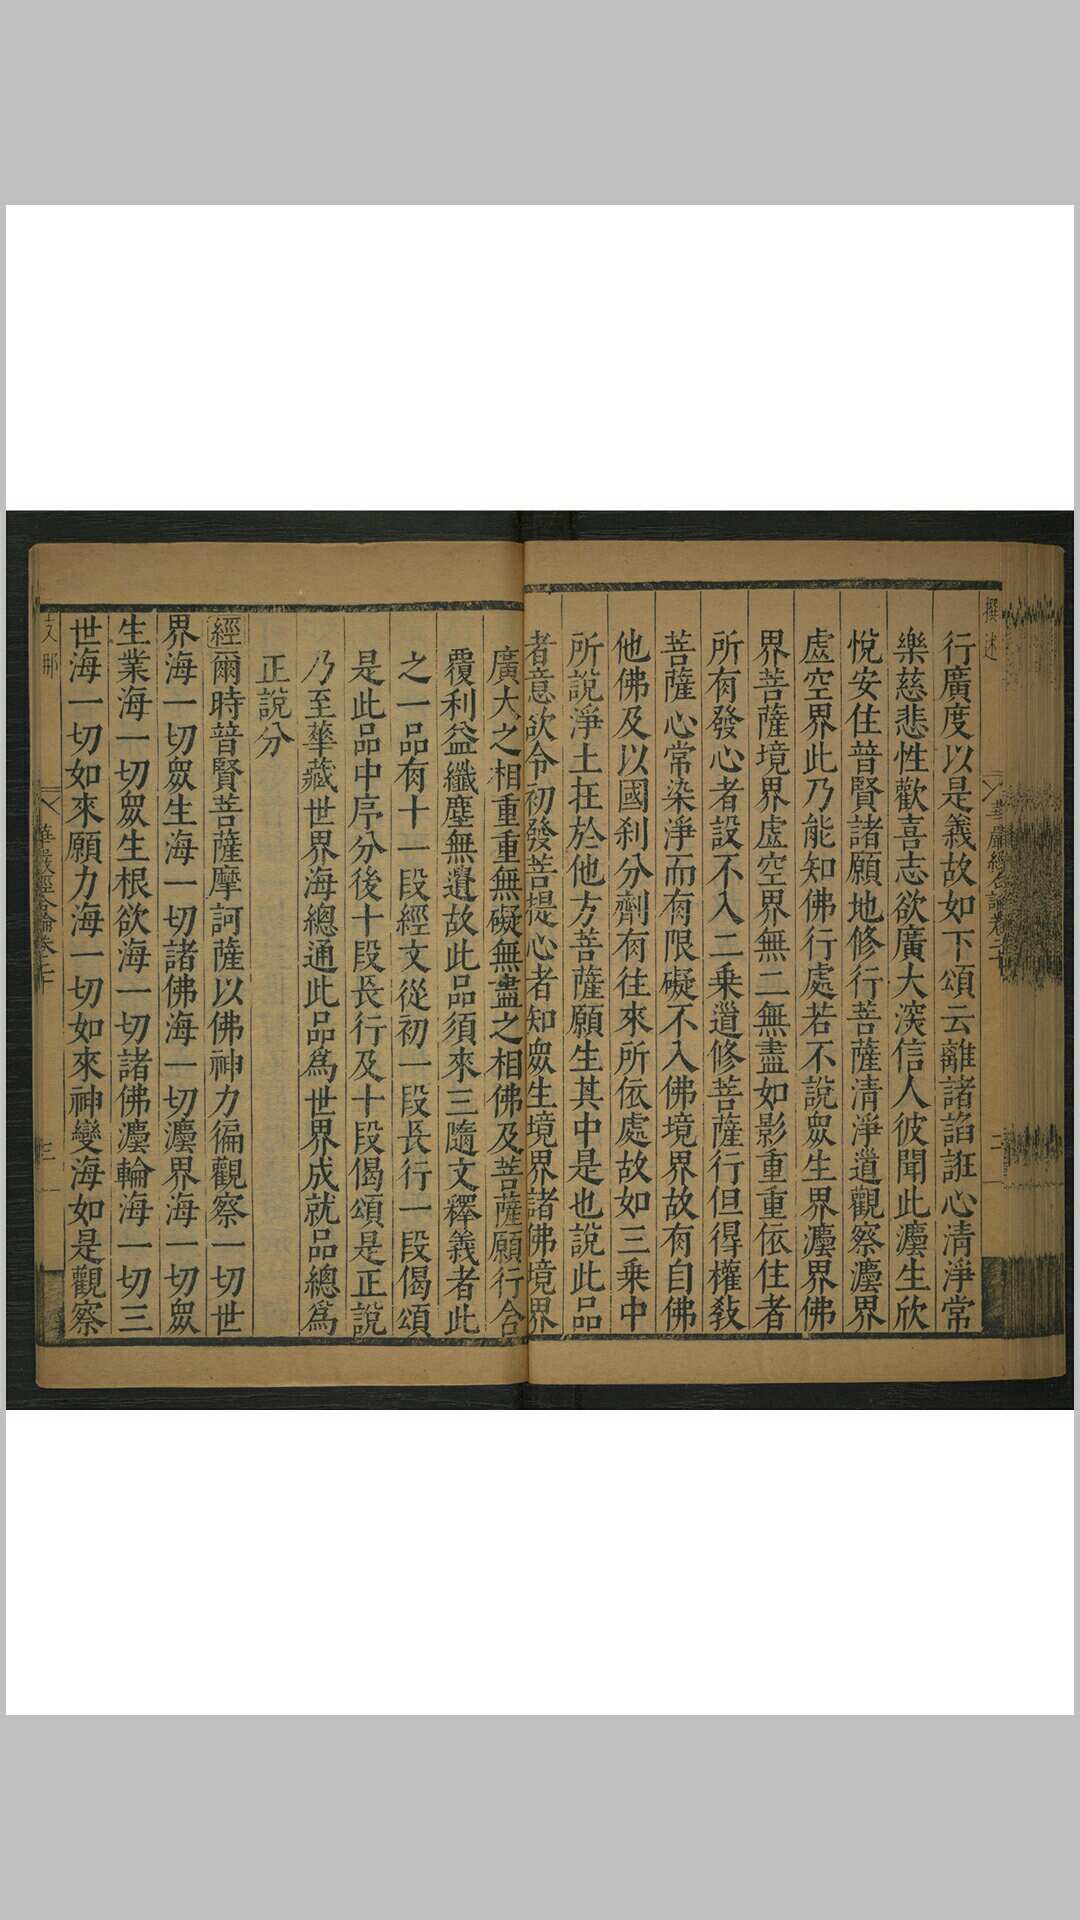 撰述
華嚴經合論卷二十
二
行廣度以是義故如下頌云離諸諂誑心清淨常
樂慈悲性歡喜志欲廣大深信人彼聞此灋生欣
悅安住普賢諸願地修行菩薩清淨道觀察灋界
虛空界此乃能知佛行處若不說眾生界灋界佛
界菩薩境界虛空界無二無盡如影重重依住者
所有發心者設不入二乗道修菩薩行但得權教
菩薩心常染淨而有限礙不入佛境界故有自佛
他佛及以國刹分劑有往來所依處故如三乗中
所說淨土在於他方菩薩願生其中是也說此品
者意欲令初發菩提心者知眾生境界諸佛境界
廣大之相重重無礙無盡之相佛及菩薩願行合
覆利益纖塵無遺故此品須來三隨文釋義者此
之一品有十一段經文從初一段長行一段偈頌
是此品中序分後十段長行及十段偈頌是正說
乃至華藏世界海總通此品為世界成就品總為
正說分
經爾時普賢菩薩摩訶薩以佛神力徧觀察一切世
界海一切眾生海一切諸佛海一切灋界海一切眾
生業海一切眾生根欲海一切諸佛灋輪海一切三
世海一切如來願力海一切如來神變海如是觀察
支那
華嚴經合論卷二十
三